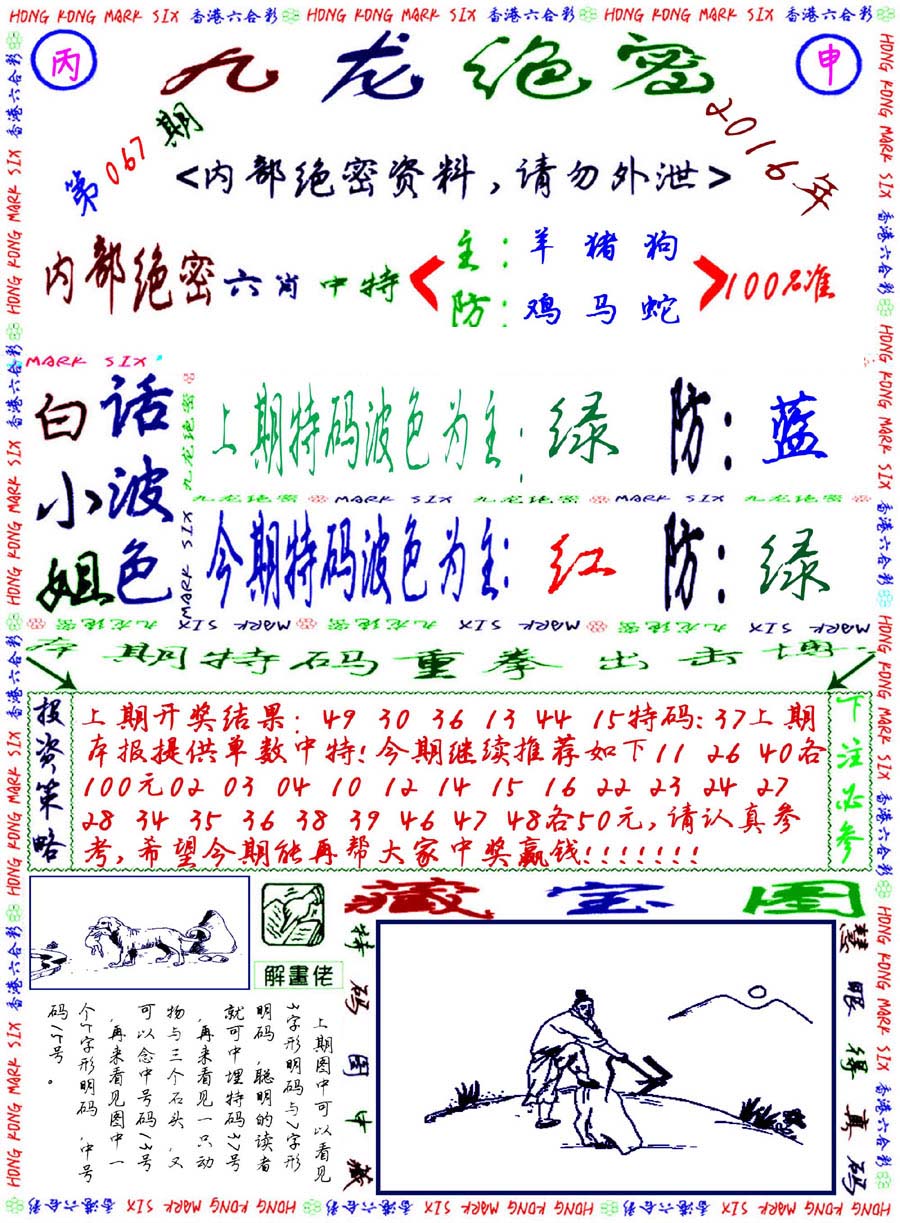 HONG KONG MARK SIX 香港六合彩 HONG KONG MARK SIX 香港六合彩 HONG KONG MARK SIX 香港六合彩
丙
九龙绝密
申
第067期
2016年
<内部绝密资料,请勿外泄>
内部绝密六肖中特
主:羊猪狗
防:鸡马蛇
100%准
MARK SIX
白话
小波
姐色
上期特码波色为主:绿 防:蓝
九龙绝密 MARK SIX 九龙绝密 MARK SIX 九龙绝密
今期特码波色为主:红 防:绿
九龙绝密 MARK SIX 九龙绝密 MARK SIX 九龙绝密 MARK SIX
本期特码重拳出击博
投资策略
上期开奖结果: 49 30 36 13 44 15特码:37上期
本报提供单数中特!今期继续推荐如下11 26 40各
100元02 03 04 10 12 14 15 16 22 23 24 27
28 34 35 36 38 39 46 47 48各50元,请认真参
考,希望今期能再帮大家中奖赢钱!!!!!!!
下注必参
解畫佬
藏宝图
特码图中藏
慧眼得真码
上期图中可以看见
3字形明码与7字形
明码,聪明的读者
就可中埋特码37号
,再来看见一只动
物与三个石头,又
可以念中号码13号
,再来看见图中一
个个字形明码,中号
HONG KONG MARK SIX 香港六合彩 HONG KONG MARK SIX 香港六合彩 HONG KONG MARK SIX 香港六合彩